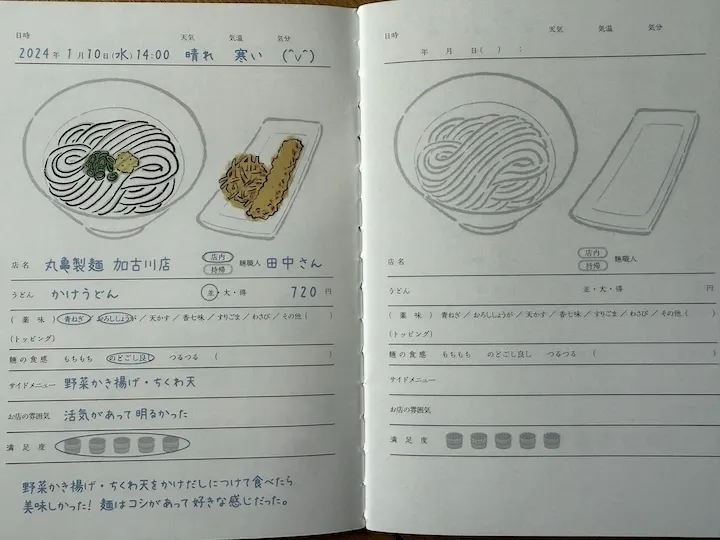 日時 天気 気温 気分
2024年 1月10日(水)14:00 晴れ 寒い (^v^)
店名 丸亀製麺 加古川店 店内 持帰 麺職人 田中さん
うどん かけうどん 並・大・得 720円
(薬味) 青ねぎ / おろししょうが / 天かす / 香七味 / すりごま / わさび / その他( )
(トッピング)
麺の食感 もちもち のどごし良し つるつる ( )
サイドメニュー 野菜かき揚げ・ちくわ天
お店の雰囲気 活気があって明るかった
満足度
野菜かき揚げ・ちくわ天をかけだしにつけて食べたら
美味しかった! 麺はコシがあって好きな感じだった。
日時 天気 気温 気分
年 月 日( ) :
店名 店内 持帰 麺職人
うどん 並・大・得 円
(薬味) 青ねぎ / おろししょうが / 天かす / 香七味 / すりごま / わさび / その他( )
(トッピング)
麺の食感 もちもち のどごし良し つるつる ( )
サイドメニュー
お店の雰囲気
満足度